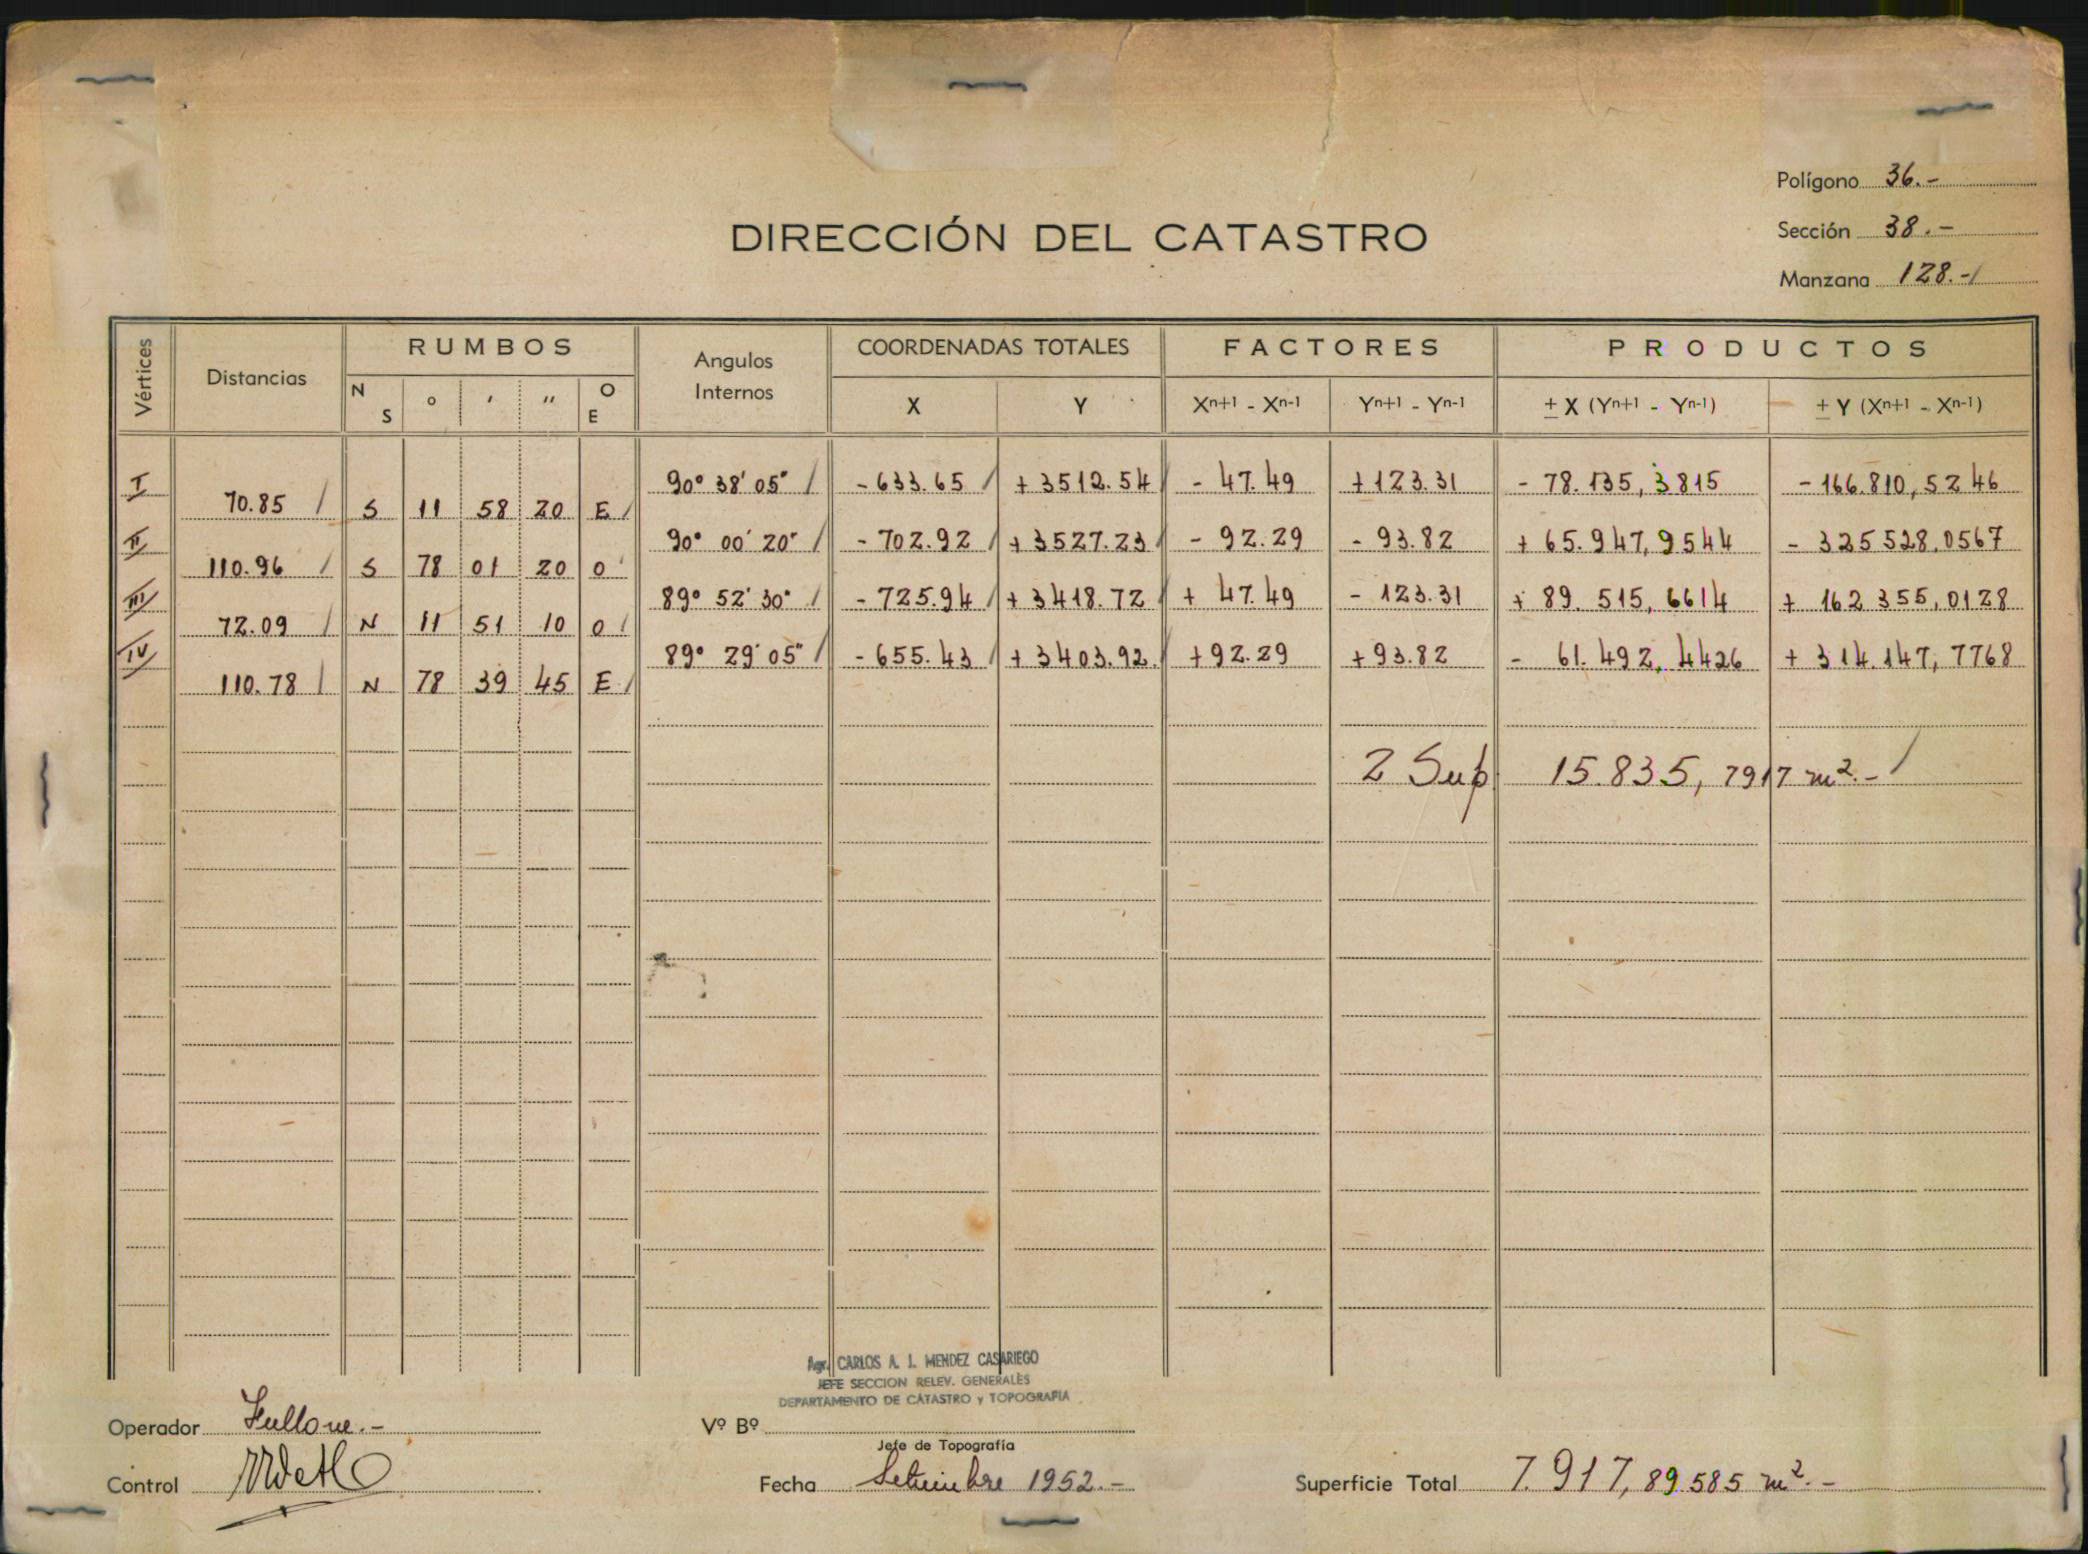 Polígono 36.-
DIRECCIÓN DEL CATASTRO
Sección 38.-
Manzana 128.-
Vértices Distancias RUMBOS Angulos Internos COORDENADAS TOTALES FACTORES PRODUCTOS
N S ° ' " O E X Y Xⁿ⁺¹ - Xⁿ⁻¹ Yⁿ⁺¹ - Yⁿ⁻¹ ± X (Yⁿ⁺¹ - Yⁿ⁻¹) ± Y (Xⁿ⁺¹ - Xⁿ⁻¹)
I 90° 38' 05" - 633.65 + 3512.54 - 47.49 + 123.31 - 78.135,3815 - 166.810,5246
70.85 S 11 58 20 E
II 90° 00' 20" - 702.92 + 3527.23 - 92.29 - 93.82 + 65.947,9544 - 325528,0567
110.96 S 78 01 20 O
III 89° 52' 30" - 725.94 + 3418.72 + 47.49 - 123.31 + 89.515,6614 + 162355,0128
72.09 N 11 51 10 O
IV 89° 29' 05" - 655.43 + 3403.92 + 92.29 + 93.82 - 61.492,4426 + 314.147,7768
110.78 N 78 39 45 E
2 Sup 15.835,7917 m².-
Agr. CARLOS A. J. MENDEZ CASARIEGO
JEFE SECCION RELEV. GENERALES
DEPARTAMENTO DE CATASTRO y TOPOGRAFIA
Operador Fullone.-
Vº Bº
Jefe de Topografía
Control
Fecha Setiembre 1952.-
Superficie Total 7.917,89.585 m².-